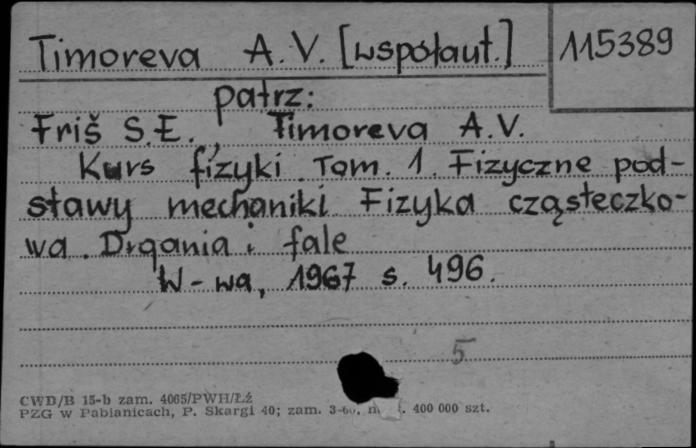 Timoreva A.V. [współaut.]
115389
patrz:
Friš S.E., Timoreva A.V.
Kurs fizyki. Tom. 1. Fizyczne pod-
stawy mechaniki. Fizyka cząsteczko-
wa. Drgania i fale
W-wa, 1967 s. 496.
5
CWD/B 15-b zam. 4065/PWH/Łź
PZG w Pabianicach, P. Skargi 40; zam. 400 000 szt.